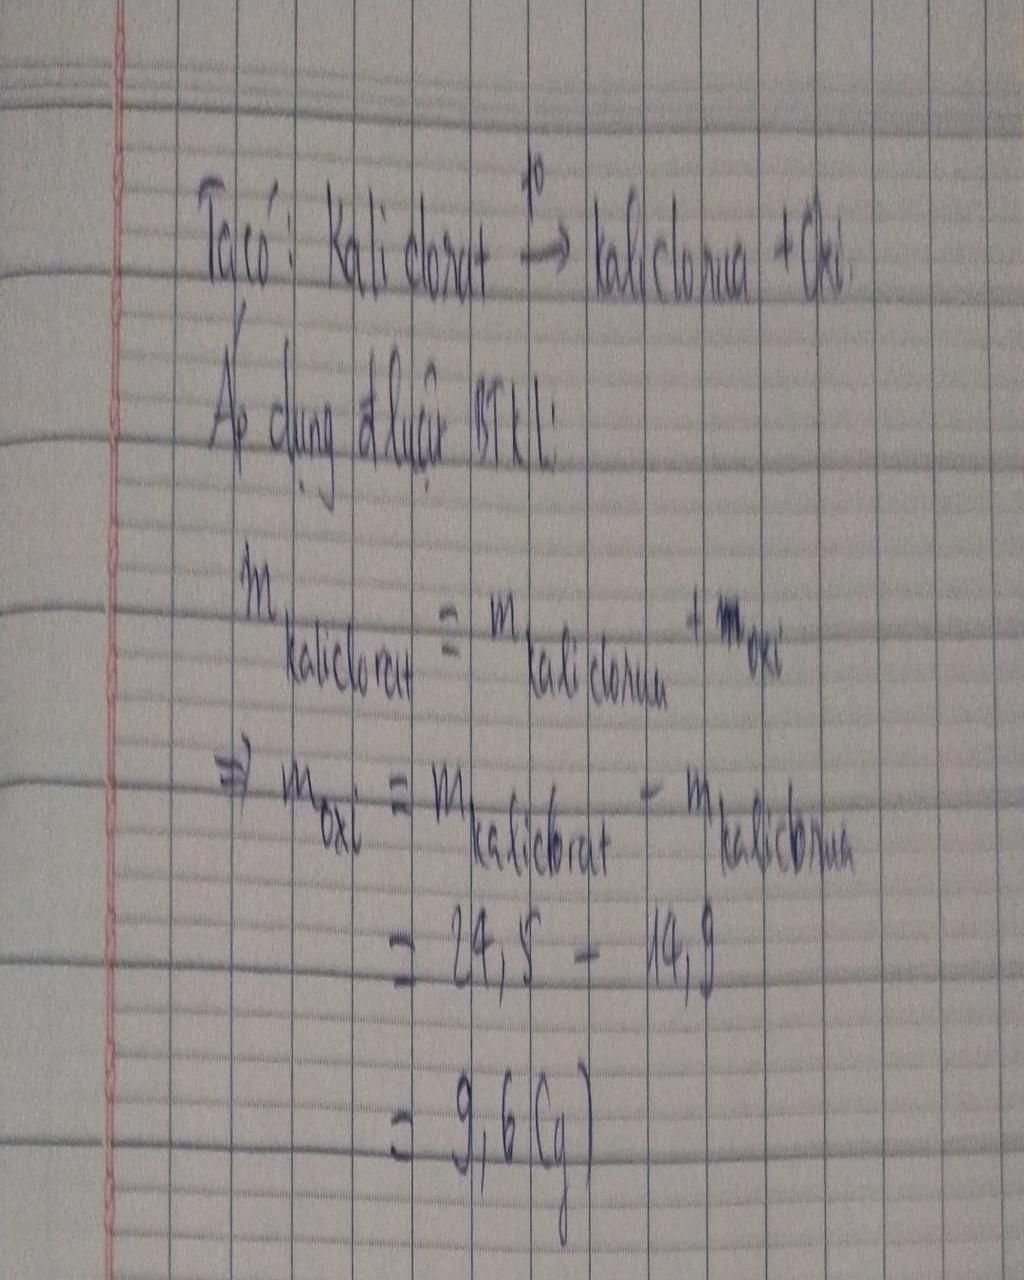 Ta có: Kali clorat t⁰→ kali clorua + Oxi.
Áp dụng đ luật BTKL:
m kali clorat = m kali clorua + m oxi
⇒ m oxi = m kali clorat - m kali clorua
= 24,5 - 14,9
= 9,6 (g)